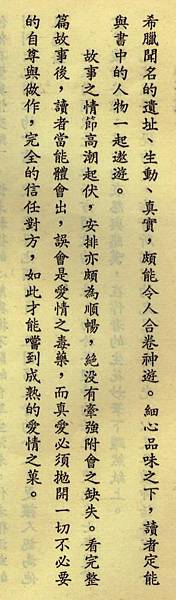 希臘聞名的遺址、生動、真實，頗能令人合卷神遊。細心品味之下，讀者定能
與書中的人物一起遨遊。
故事之情節高潮起伏，安排亦頗為順暢，絕没有牽強附會之缺失。看完整
篇故事後，讀者當能體會出，誤會是愛情之毒藥，而真愛必須拋開一切不必要
的自尊與做作，完全的信任對方，如此才能嚐到成熟的愛情之菓。